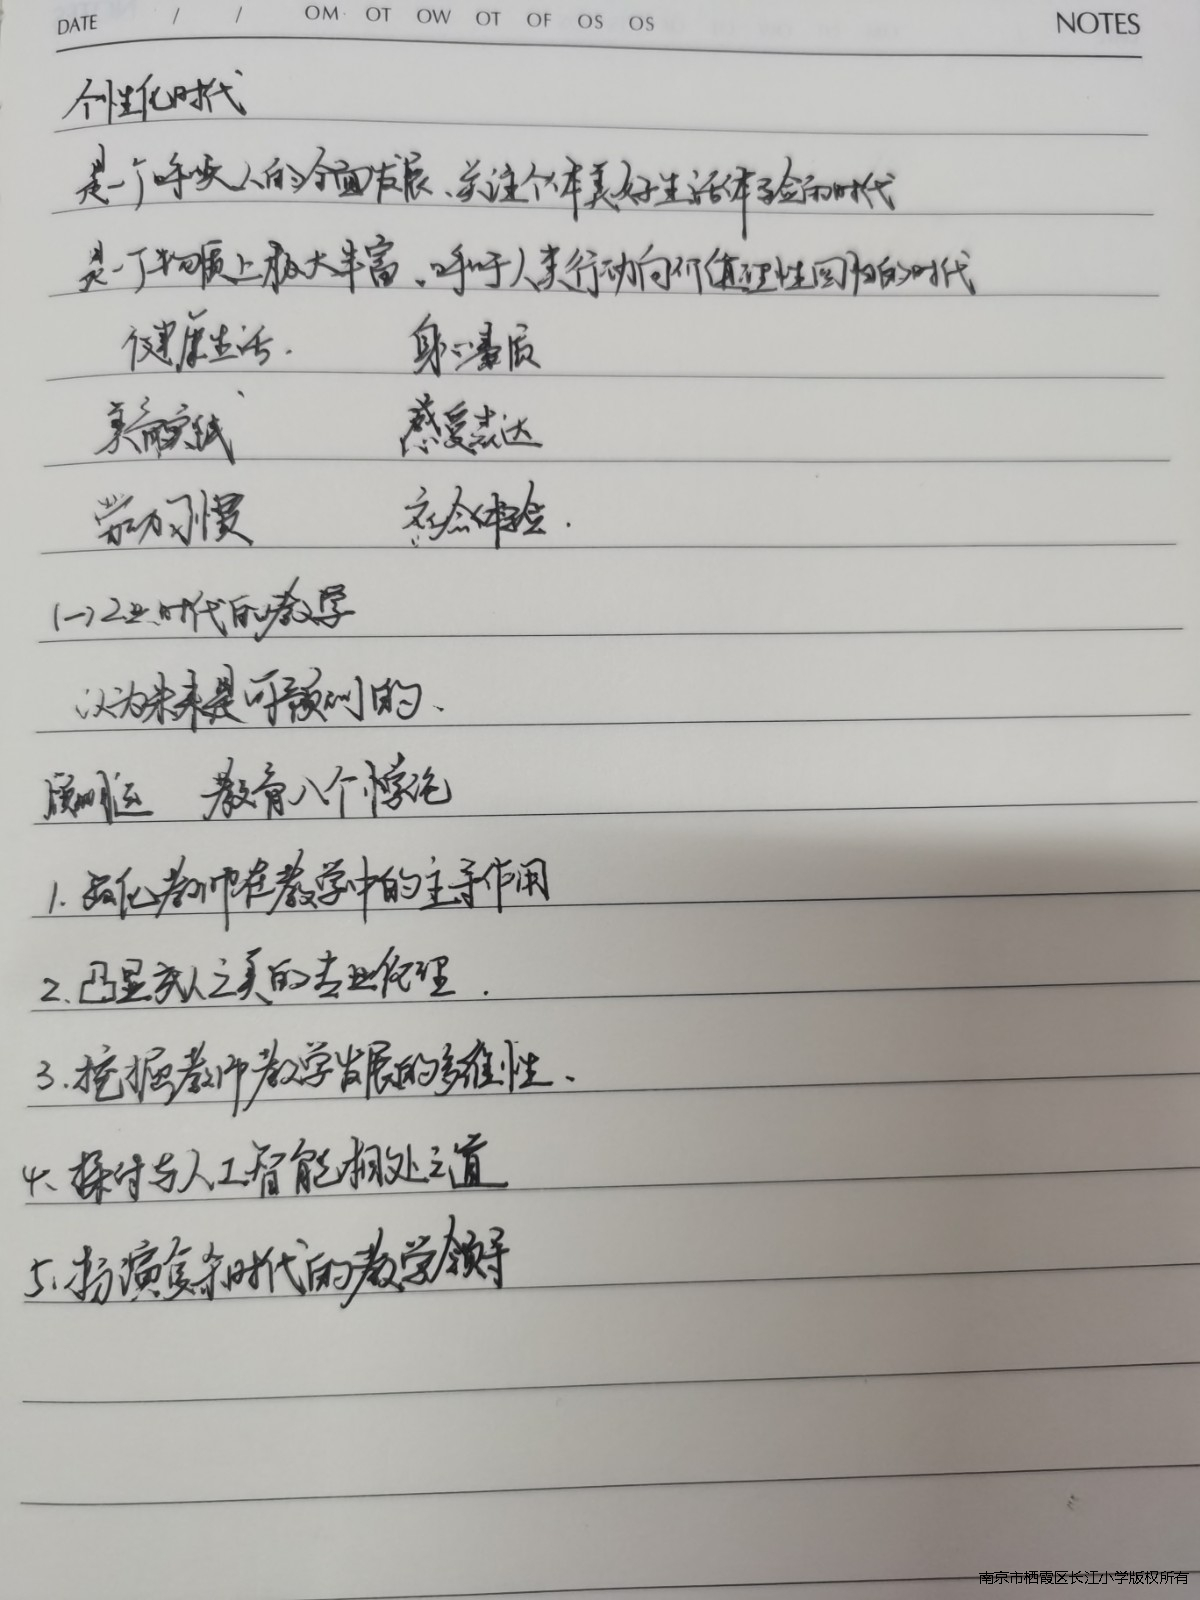 DATE / / OM OT OW OT OF OS OS NOTES
个性化时代
是一个呼唤人的全面发展、关注个体美好生活体验的时代
是一个物质上极大丰富、呼吁人类行动向价值理性回归的时代
健康生活. 身心素质
美育实践 感受表达
劳动习惯 社会体验.
(一)工业时代的教学
认为未来是可预测的、
顾明远 教育八个悖论
1. 强化教师在教学中的主导作用
2. 凸显成人之美的专业伦理.
3. 挖掘教师教学发展的多维性、
4、探讨与人工智能相处之道
5. 扮演复杂时代的教学领导
南京市栖霞区长江小学版权所有